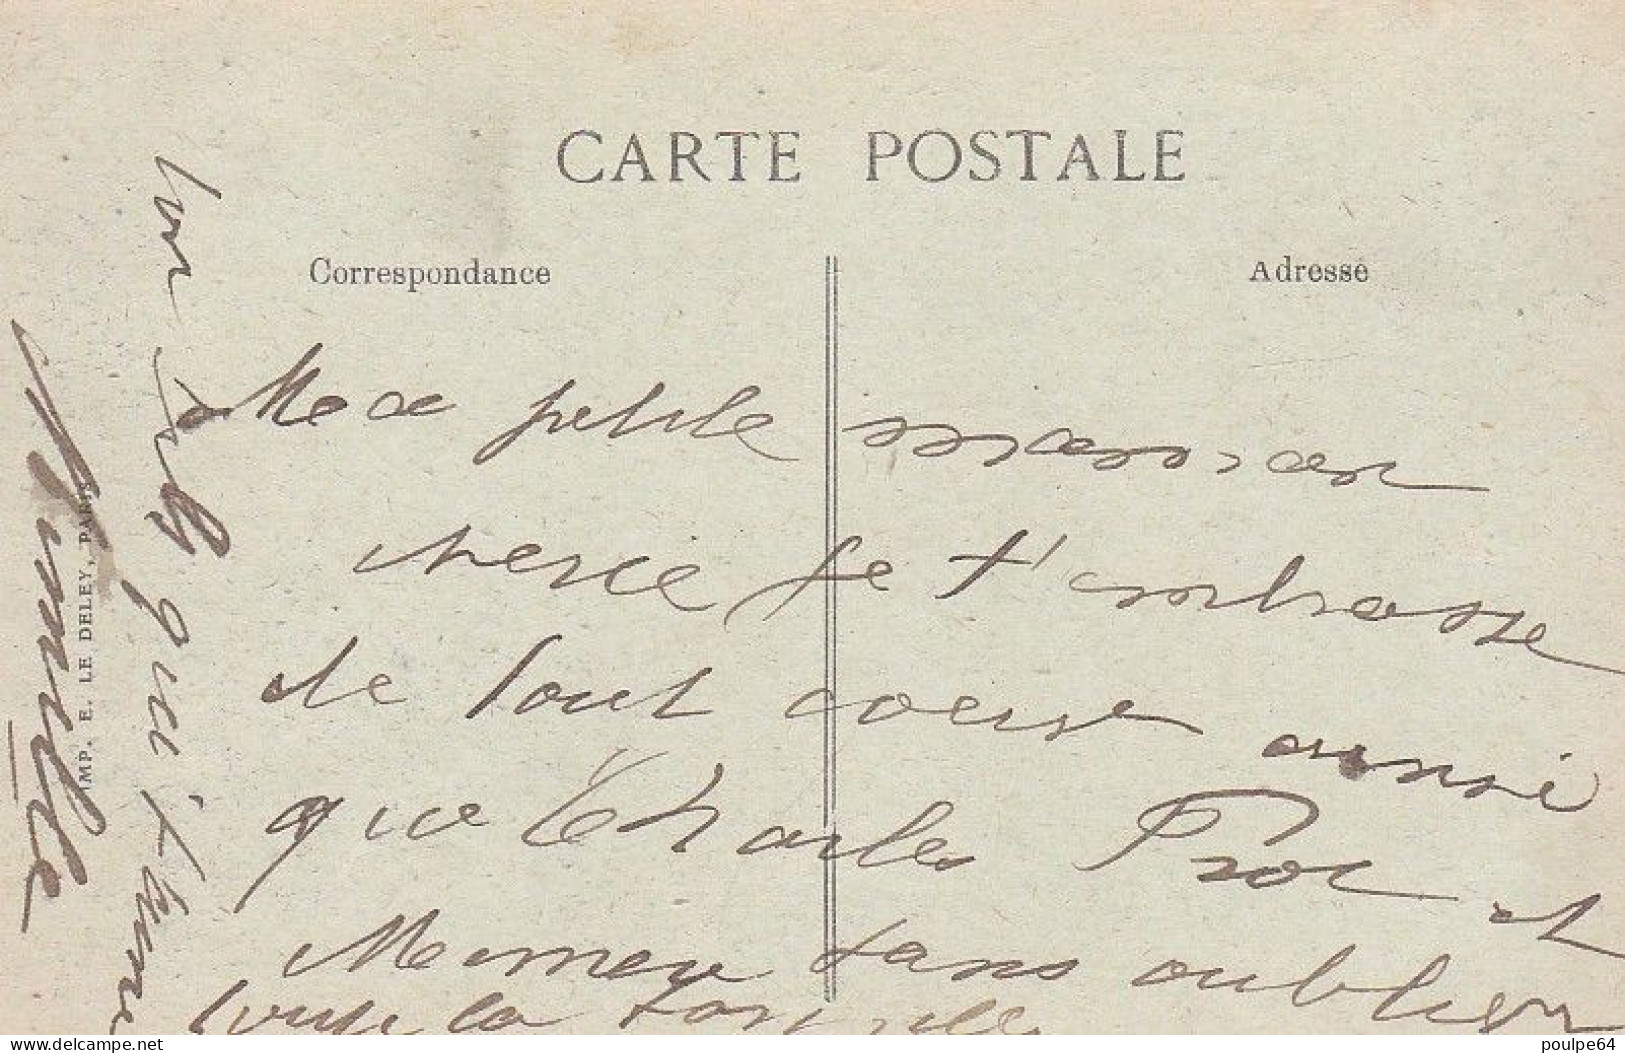 CARTE POSTALE
Correspondance
Adresse
Ma petite maman
cherie je t'embrasse
de tout coeur ainsi
que Charles et
Memere sans oublier
toute la famille
ton fils qui t'aime
IMP. E. LE DELEY, PARIS
www.delcampe.net
poulpe64